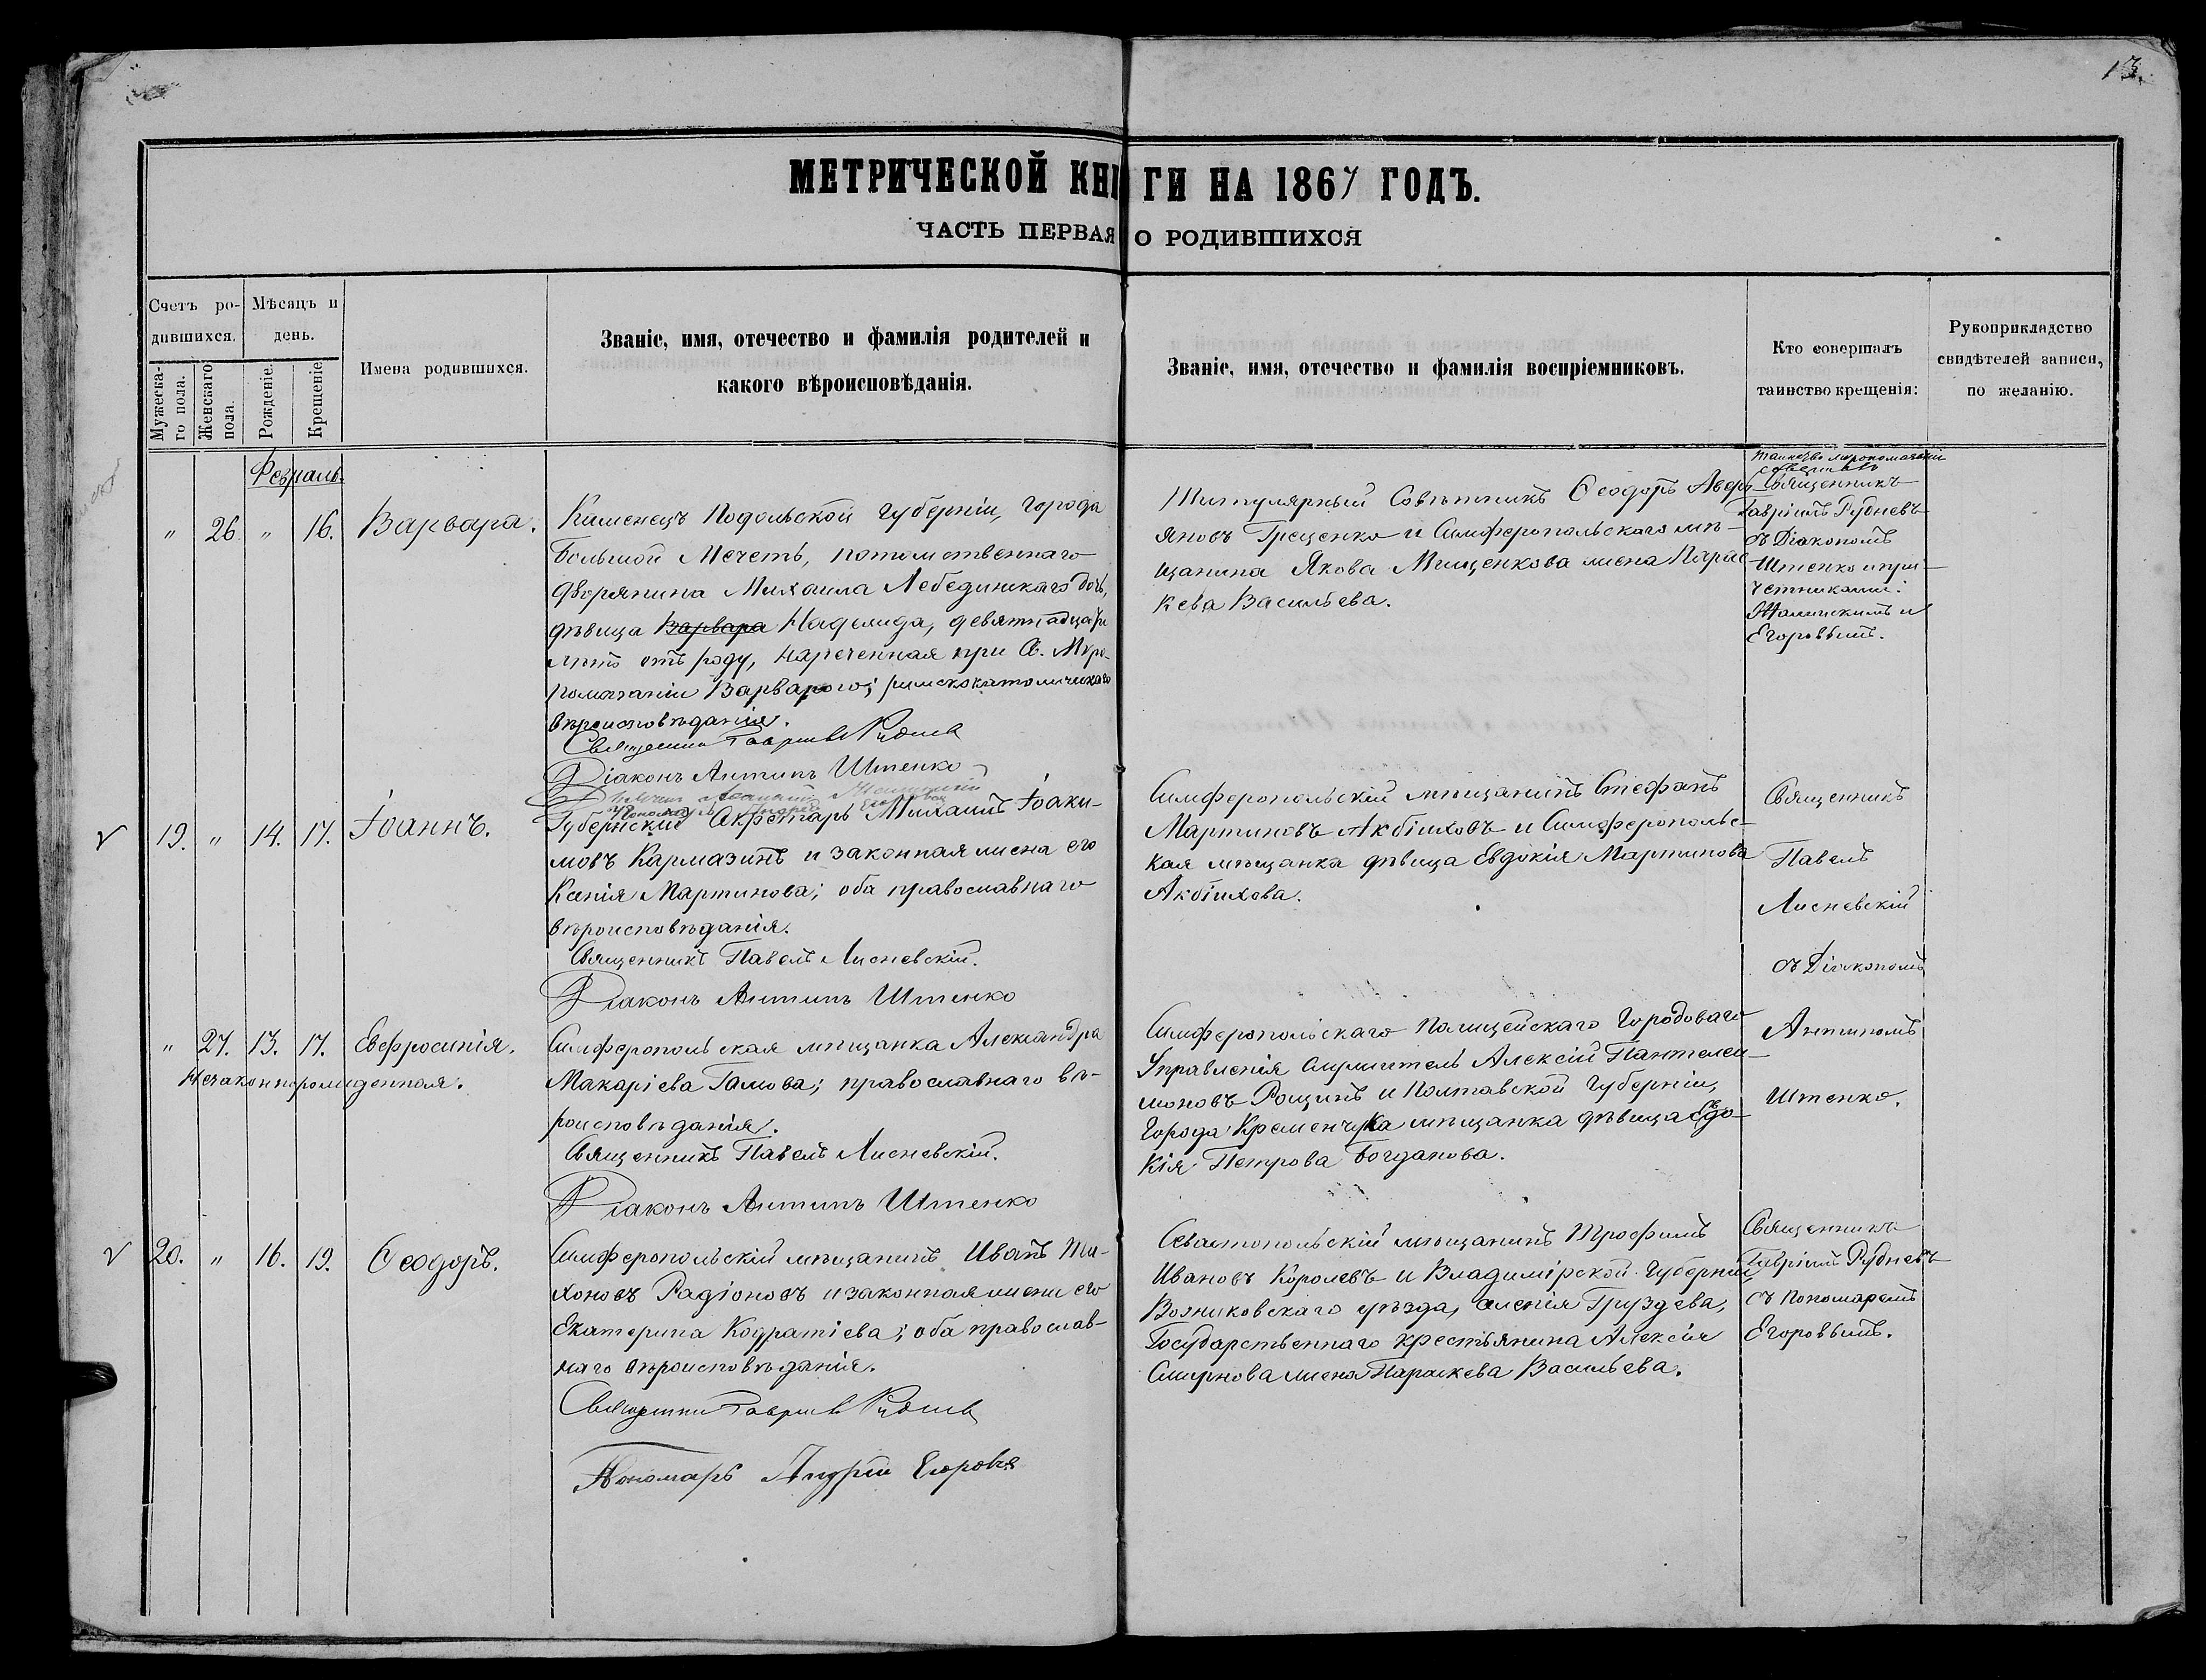 13.
МЕТРИЧЕСКОЙ КНИГИ НА 1867 ГОДЪ.
ЧАСТЬ ПЕРВАЯ О РОДИВШИХСЯ
Счетъ ро-
дившихся.
Мужеска-
го пола.
Женскаго
пола.
Мѣсяцъ и
день.
Рожденіе.
Крещеніе
Имена родившихся.
Званіе, имя, отечество и фамилія родителей и
какого вѣроисповѣданія.
Званіе, имя, отечество и фамилія воспріемниковъ.
Кто совершалъ
таинство крещенія:
Рукоприкладство
свидѣтелей записи,
по желанію.
Февраль.
" 26. " 16. Варвара.
Каменецъ Подольской Губерніи, города
Большой Мечеть, потомственнаго
дворянина Михаила Лебединскаго дочь,
дѣвица Варвара Надежда, девятнадцати
лѣтъ отъ роду, нареченная при Св. Мѵро-
помазаніи Варварою; римскокатолическаго
вѣроисповѣданія.
Священник Гавріилъ Руднев
Діаконъ Антипъ Штенко
Пономарь Андрей Егоровъ
Титулярный Совѣтникъ Ѳеодоръ Авер-
яновъ Грещенко и Симферопольскаго мѣ-
щанина Якова Мищенкова жена Парас-
кева Васильева.
Таинство мѵропомазанія
совершалъ
Священникъ
Гавріилъ Рудневъ
съ Діакономъ
Штенко и при-
четниками:
и
Егоровымъ.
19. " 14. 17. Іоаннъ.
Губернскій Секретарь Михаилъ Іоаки-
мовъ Кармазинъ и законная жена его
Ксенія Мартинова; оба православнаго
вѣроисповѣданія.
Священникъ Павелъ Лисневскій.
Діаконъ Антипъ Штенко
Симферопольскій мѣщанинъ Стефанъ
Мартиновъ Акбіиховъ и Симферопольс-
кая мѣщанка дѣвица Евдокія Мартинова
Акбіихова.
Священникъ
Павелъ
Лисневскій
съ Діакономъ
Антипомъ
Штенко.
" 27. 13. 17. Евфросинія.
Незаконнорожденная.
Симферопольская мѣщанка Александра
Макаріева Гамова; православнаго вѣ-
роисповѣданія.
Священникъ Павелъ Лисневскій.
Діаконъ Антипъ Штенко
Симферопольскаго Полицейскаго Городоваго
Управленія служитель Алексій Пантелеи-
моновъ Рощинъ и Полтавской Губерніи,
Города Кременчука мѣщанка дѣвица Евдо-
кія Петрова Богданова.
20. " 16. 19. Ѳеодоръ.
Симферопольскій мѣщанинъ Иванъ Ти-
хоновъ Радіоновъ и законная жена его
Екатерина Кодратіева; оба православ-
наго вѣроисповѣданія.
Священник Гавріилъ Руднев
Пономарь Андрей Егоровъ
Севастопольскій мѣщанинъ Трофимъ
Ивановъ Королевъ и Владимірской Губерніи,
Возниковскаго уѣзда, селенія Груздева,
Государственнаго крестьянина Алексія
Смирнова жена Параскева Васильева.
Священникъ
Гавріилъ Рудневъ
съ Пономаремъ
Егоровымъ.